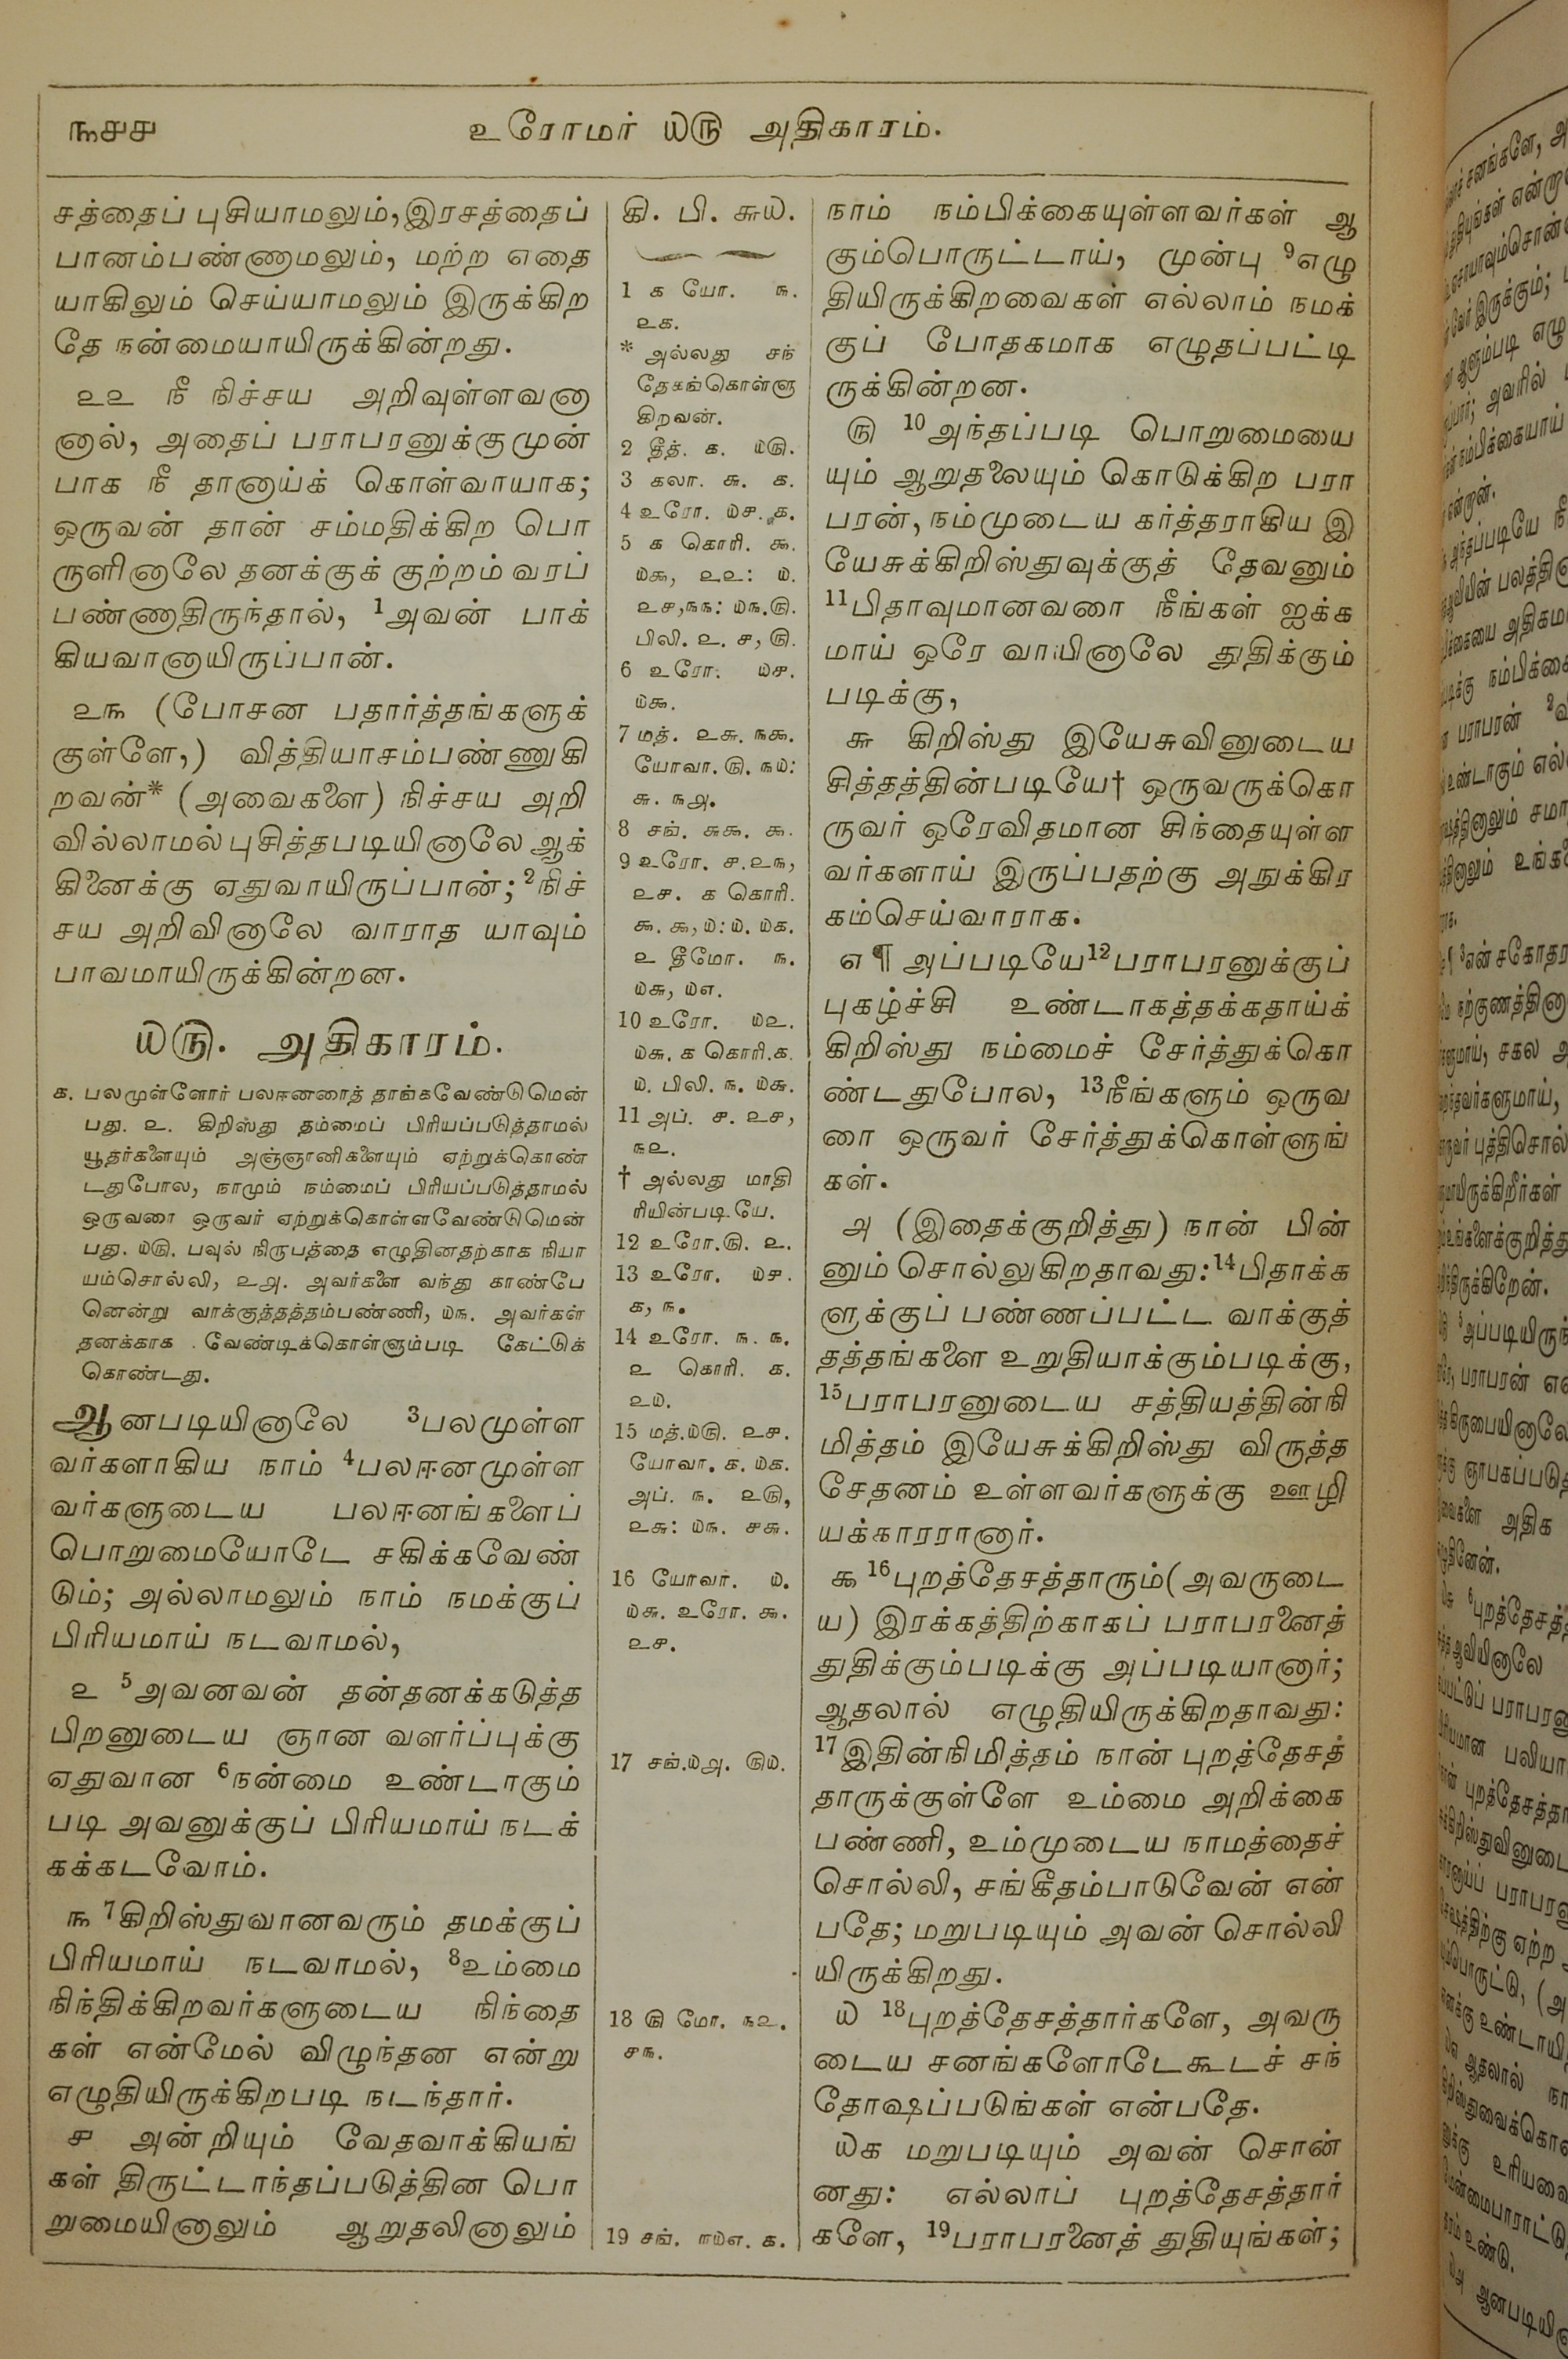 ௩௪௪
உரோமர் ௰௫ அதிகாரம்.
சத்தைப் புசியாமலும்,இரசத்தைப்
பானம்பண்ணாமலும், மற்ற எதை
யாகிலும் செய்யாமலும் இருக்கிற
தே நன்மையாயிருக்கின்றது.
௨௨ நீ நிச்சய அறிவுள்ளவனா
னால், அதைப் பராபரனுக்குமுன்
பாக நீ தானாய்க் கொள்வாயாக;
ஒருவன் தான் சம்மதிக்கிற பொ
ருளினாலே தனக்குக் குற்றம் வரப்
பண்ணாதிருந்தால், 1அவன் பாக்
கியவானாயிருப்பான்.
௨௩ (போசன பதார்த்தங்களுக்
குள்ளே,) வித்தியாசம்பண்ணுகி
றவன்* (அவைகளை) நிச்சய அறி
வில்லாமல் புசித்தபடியினாலே ஆக்
கினைக்கு ஏதுவாயிருப்பான்; 2நிச்
சய அறிவினாலே வாராத யாவும்
பாவமாயிருக்கின்றன.
௰௫. அதிகாரம்.
௧. பலமுள்ளோர் பலஈனரைத் தாங்கவேண்டுமென்
பது. ௨. கிறிஸ்து தம்மைப் பிரியப்படுத்தாமல்
யூதர்களையும் அஞ்ஞானிகளையும் ஏற்றுக்கொண்
டதுபோல, நாமும் நம்மைப் பிரியப்படுத்தாமல்
ஒருவரை ஒருவர் ஏற்றுக்கொள்ளவேண்டுமென்
பது. ௰௫. பவுல் நிருபத்தை எழுதினதற்காக நியா
யம்சொல்லி, ௨௮. அவர்களை வந்து காண்பே
னென்று வாக்குத்தத்தம்பண்ணி, ௰௩. அவர்கள்
தனக்காக வேண்டிக்கொள்ளும்படி கேட்டுக்
கொண்டது.
ஆனபடியினாலே 3பலமுள்ள
வர்களாகிய நாம் 4பலஈனமுள்ள
வர்களுடைய பலஈனங்களைப்
பொறுமையோடே சகிக்கவேண்
டும்; அல்லாமலும் நாம் நமக்குப்
பிரியமாய் நடவாமல்,
௨ 5அவனவன் தன்தனக்கடுத்த
பிறனுடைய ஞான வளர்ப்புக்கு
ஏதுவான 6நன்மை உண்டாகும்
படி அவனுக்குப் பிரியமாய் நடக்
கக்கடவோம்.
௩ 7கிறிஸ்துவானவரும் தமக்குப்
பிரியமாய் நடவாமல், 8உம்மை
நிந்திக்கிறவர்களுடைய நிந்தை
கள் என்மேல் விழுந்தன என்று
எழுதியிருக்கிறபடி நடந்தார்.
௪ அன்றியும் வேதவாக்கியங்
கள் திருட்டாந்தப்படுத்தின பொ
றுமையினாலும் ஆறுதலினாலும்
கி. பி. ௬௰.
1 ௧ யோ. ௩.
௨௧.
* அல்லது சந்
தேகங்கொள்ளு
கிறவன்.
2 தீத். ௧. ௰௫.
3 கலா. ௬. ௧.
4 உரோ. ௰௪. ௧.
5 ௧ கொரி. ௯.
௰௯, ௨௨: ௰.
௨௪,௩௩: ௰௩.௫.
பிலி. ௨. ௪, ௫.
6 உரோ. ௰௪.
௰௯.
7 மத். ௨௬. ௩௯.
யோவா. ௫. ௩௰:
௬. ௩௮.
8 சங். ௬௯. ௯.
9 உரோ. ௪.௨௩,
௨௪. ௧ கொரி.
௯. ௯, ௰: ௰. ௰௧.
௨ தீமோ. ௩.
௰௬, ௰௭.
10 உரோ. ௰௨.
௰௬. ௧ கொரி.௧.
௰. பிலி. ௩. ௰௬.
11 அப். ௪. ௨௪,
௩௨.
† அல்லது மாதி
ரியின்படியே.
12 உரோ.௫. ௨.
13 உரோ. ௰௪.
௧, ௩.
14 உரோ. ௩. ௩.
௨ கொரி. ௧.
௨௰.
15 மத்.௰௫. ௨௪.
யோவா. ௧. ௰௧.
அப். ௩. ௨௫,
௨௬: ௰௩. ௪௬.
16 யோவா. ௰.
௰௬. உரோ. ௯.
௨௪.
17 சங்.௰௮. ௫௰.
18 ௫ மோ. ௩௨.
௪௩.
19 சங். ௱௰௭. ௧.
நாம் நம்பிக்கையுள்ளவர்கள் ஆ
கும்பொருட்டாய், முன்பு 9எழு
தியிருக்கிறவைகள் எல்லாம் நமக்
குப் போதகமாக எழுதப்பட்டி
ருக்கின்றன.
௫ 10அந்தப்படி பொறுமையை
யும் ஆறுதலையும் கொடுக்கிற பரா
பரன், நம்முடைய கர்த்தராகிய இ
யேசுக்கிறிஸ்துவுக்குத் தேவனும்
11பிதாவுமானவரை நீங்கள் ஐக்க
மாய் ஒரே வாயினாலே துதிக்கும்
படிக்கு,
௬ கிறிஸ்து இயேசுவினுடைய
சித்தத்தின்படியே† ஒருவருக்கொ
ருவர் ஒரேவிதமான சிந்தையுள்ள
வர்களாய் இருப்பதற்கு அநுக்கிர
கம்செய்வாராக.
௭ ¶ அப்படியே12பராபரனுக்குப்
புகழ்ச்சி உண்டாகத்தக்கதாய்க்
கிறிஸ்து நம்மைச் சேர்த்துக்கொ
ண்டதுபோல, 13நீங்களும் ஒருவ
ரை ஒருவர் சேர்த்துக்கொள்ளுங்
கள்.
௮ (இதைக்குறித்து) நான் பின்
னும் சொல்லுகிறதாவது:14பிதாக்க
ளுக்குப் பண்ணப்பட்ட வாக்குத்
தத்தங்களை உறுதியாக்கும்படிக்கு,
15பராபரனுடைய சத்தியத்தின்நி
மித்தம் இயேசுக்கிறிஸ்து விருத்த
சேதனம் உள்ளவர்களுக்கு ஊழி
யக்காரரானார்.
௯ 16புறத்தேசத்தாரும்(அவருடை
ய) இரக்கத்திற்காகப் பராபரனைத்
துதிக்கும்படிக்கு அப்படியானார்;
ஆதலால் எழுதியிருக்கிறதாவது:
17இதின்நிமித்தம் நான் புறத்தேசத்
தாருக்குள்ளே உம்மை அறிக்கை
பண்ணி, உம்முடைய நாமத்தைச்
சொல்லி, சங்கீதம்பாடுவேன் என்
பதே; மறுபடியும் அவன் சொல்லி
யிருக்கிறது.
௰ 18புறத்தேசத்தார்களே, அவரு
டைய சனங்களோடேகூடச் சந்
தோஷப்படுங்கள் என்பதே.
௰௧ மறுபடியும் அவன் சொன்
னது: எல்லாப் புறத்தேசத்தார்
களே, 19பராபரனைத் துதியுங்கள்;